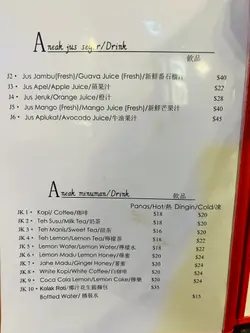 Aneak jus seg r/Drink
飲品
J2 • Jus Jambu(Fresh)/Guava Juice (Fresh)/新鮮番石榴汁 $40
J3 • Jus Apel/Apple Juice/蘋果汁 $22
J4 • Jus Jeruk/Orange Juice/橙汁 $28
J5 • Jus Mango (Fresh)/Mango Juice (Fresh)/新鮮芒果汁 $40
J6 • Jus Aplukat/Avocado Juice/牛油果汁 $45
Aneak minuman/Drink
飲品
Panas/Hot/熱 Dingin/Cold/凍
JK 1 • Kopi/ Coffee/咖啡 $18 $20
JK 2 • Teh Susu/Milk Tea/奶茶 $18 $20
JK 3 • Teh Manis/Sweet Tea/甜茶 $16 $20
JK 4 • Teh Lemon/Lemon Tea/檸檬茶 $18 $20
JK 5 • Lemon Water/Lemon Water/檸水 $18 $22
JK 6 • Lemon Madu/ Lemon Honey/ $20 $22
JK 7 • Jahe Madu/Ginger Honey/ $20 $22
JK 8 • White Kopi/White Coffee/白咖啡 $20
JK 9 • Coca Cola Lemon/Lemon Coke/檸樂 $20 $24
JK 10 • Kolak Roti/椰汁花生腸麵包 $35
Bottled Water/ 樽裝水 $15